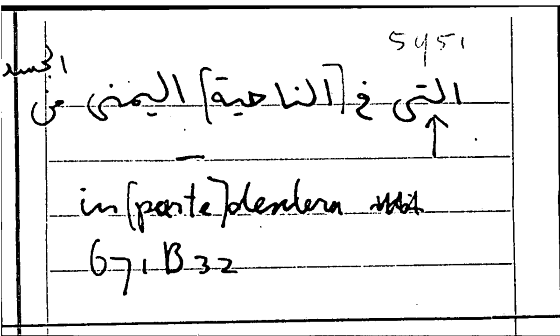 5451
التى فى [الناحية] اليمنى من الجسد
in [parte] dextera
671 B 32